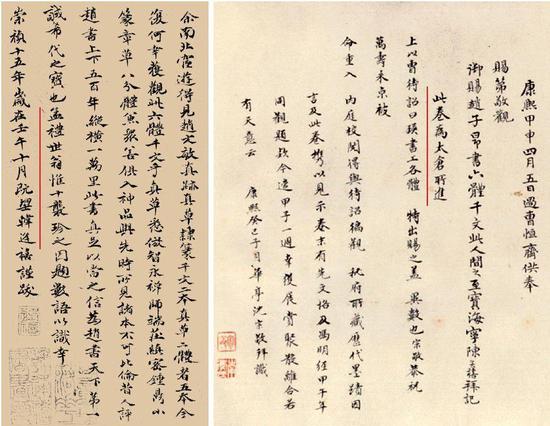 余南北宦游得見趙文敏真跡真草隸篆千文二本真草二體者五本今
復何幸獲觀此六體千文乎真草悉倣智永禪師端莊縝密鍾鼎小
篆章草八分體兼衆善俱入神品與先時所見諸本不可比倫昔人評
趙書上下五百年縱橫一萬里此書真足以當之信為趙書天下第一
誠希代之寶也孟禮世翁惟十襲珍之因題數語以識幸
崇禎十五年歲在壬午十月既望韓逢禧謹跋
康熙甲申四月五日過曹恒齋供奉
賜第敬觀
御賜趙子昂書六體千文此人間之至寶海寧陳奕禧拜記
此卷為太倉所進
上以曹待詔曰瑛書工各體 特出賜之蓋 異數也宗敬恭祝
萬壽来京被
命重入 内庭校閱得與待詔備觀 秘府所藏歷代墨蹟因
言及此卷携以見示卷末有先文恪及馮明經甲子年
同觀題欵今逢甲子一週幸復展賞聚散離合若
有天意云 康熙癸巳子月華亭沈宗敬拜識